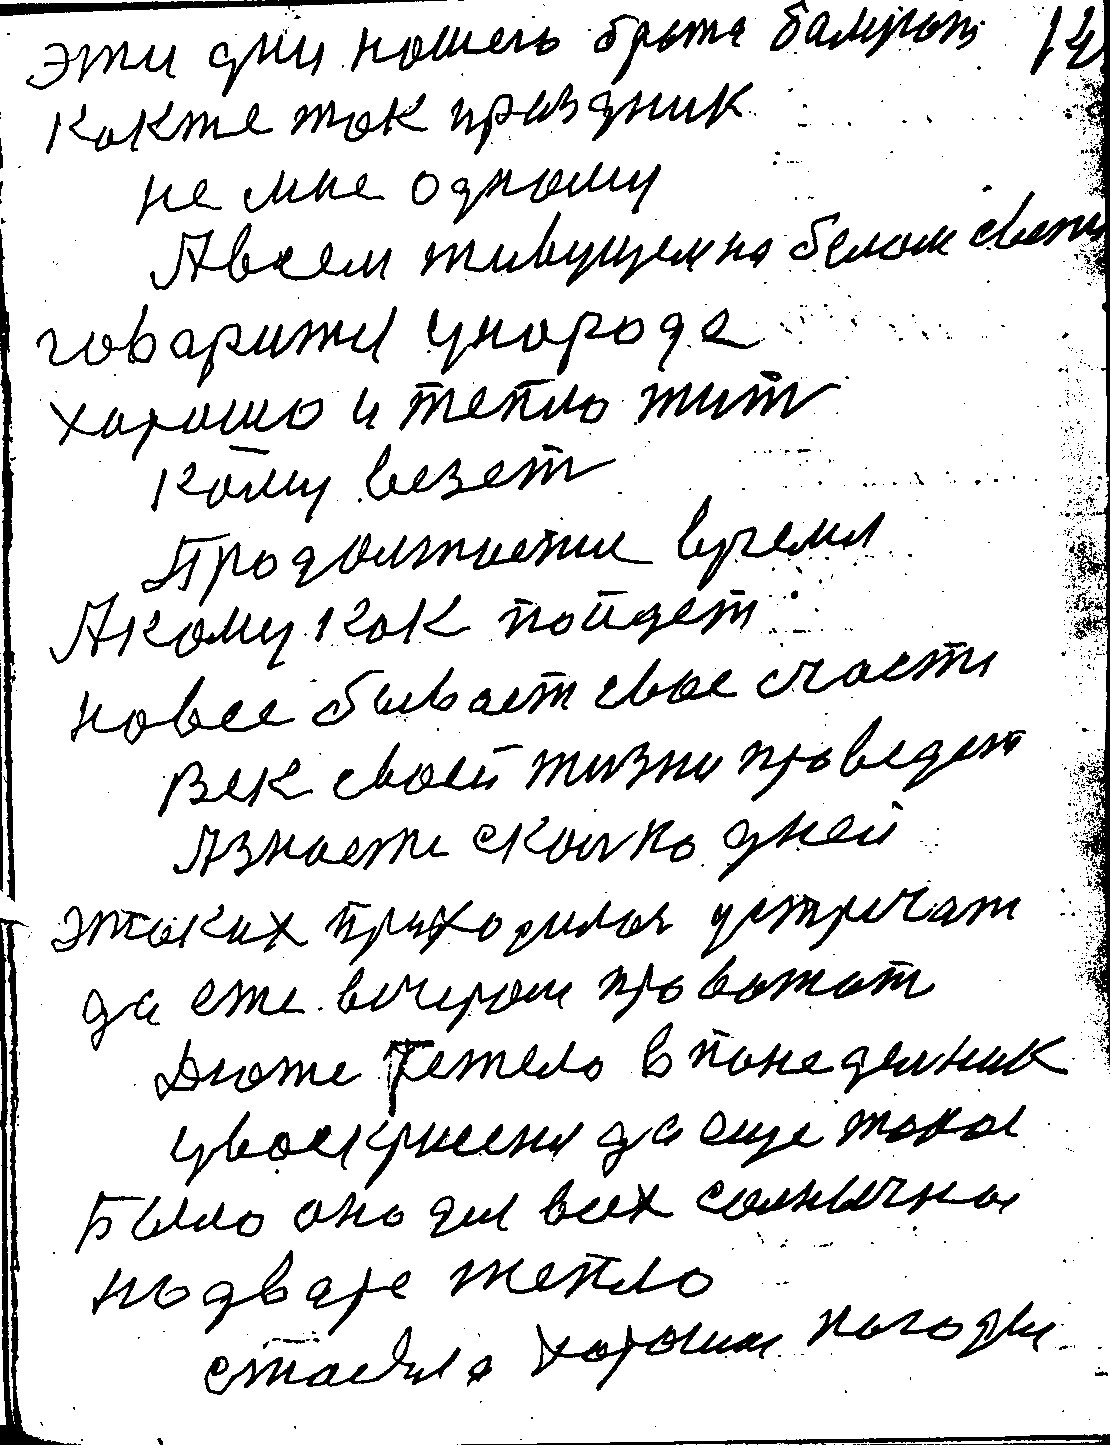 эти дни нашего брата балуют 12
какже так праздник
не мне одному
Авсем живущем на белом свети
говарити ународе
хорошо и тепло жить
кому везет
Продолжаети время
Акому как пойдет
новсе бывает свое счасти
век своей жизни проведет
Азнаети сколко дней
этаких приходилос устречат
да еже вечером правожат
Дюже тежело в понеделник
увоскрисени да още такое
Было оно для всех солнычное
надваре тепло
стаяла хорошии погоды